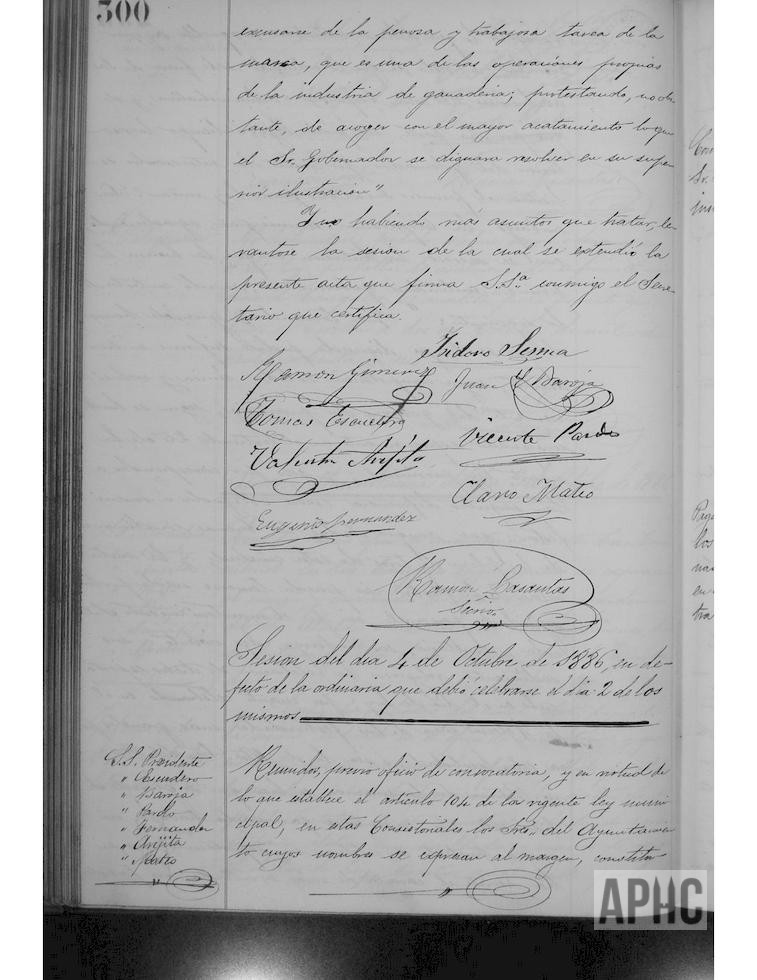 300
excusarse de la penosa y trabajosa tarea de la
marca, que es una de las operaciones propias
de la industria de ganaderia; protestando, no obs-
tante, de acoger con el mayor acatamiento lo que
el Sr. Gobernador se dignara resolver en su supe-
rior ilustracion"
Y no habiendo más asuntos que tratar, le-
vantose la sesion de la cual se extendió la
presente acta que firma S.Sª conmigo el Secre-
tario que certifica.
Isidoro Serna
Ramon Gimenez
Juan Baroja
Tomas Escudero
Vicente Pardo
Valentin Arijita
Claro Mateo
Eugenio Fernandez
Ramón Basantas
Secrio.
Sesion del dia 4 de Octubre de 1886, en de-
fecto de la ordinaria que debió celebrarse el dia 2 de los
mismos
S.S. Presidente
" Escudero
" Baroja
" Pardo
" Fernandez
" Arijita
" Mateo
Reunidos, previo oficio de convocatoria, y en virtud de
lo que establece el articulo 104 de la vigente ley muni
cipal, en estas Consistoriales los Sres. del Ayuntamien
to cuyos nombres se expresan al margen, constitu-
los
en
tra
APHC